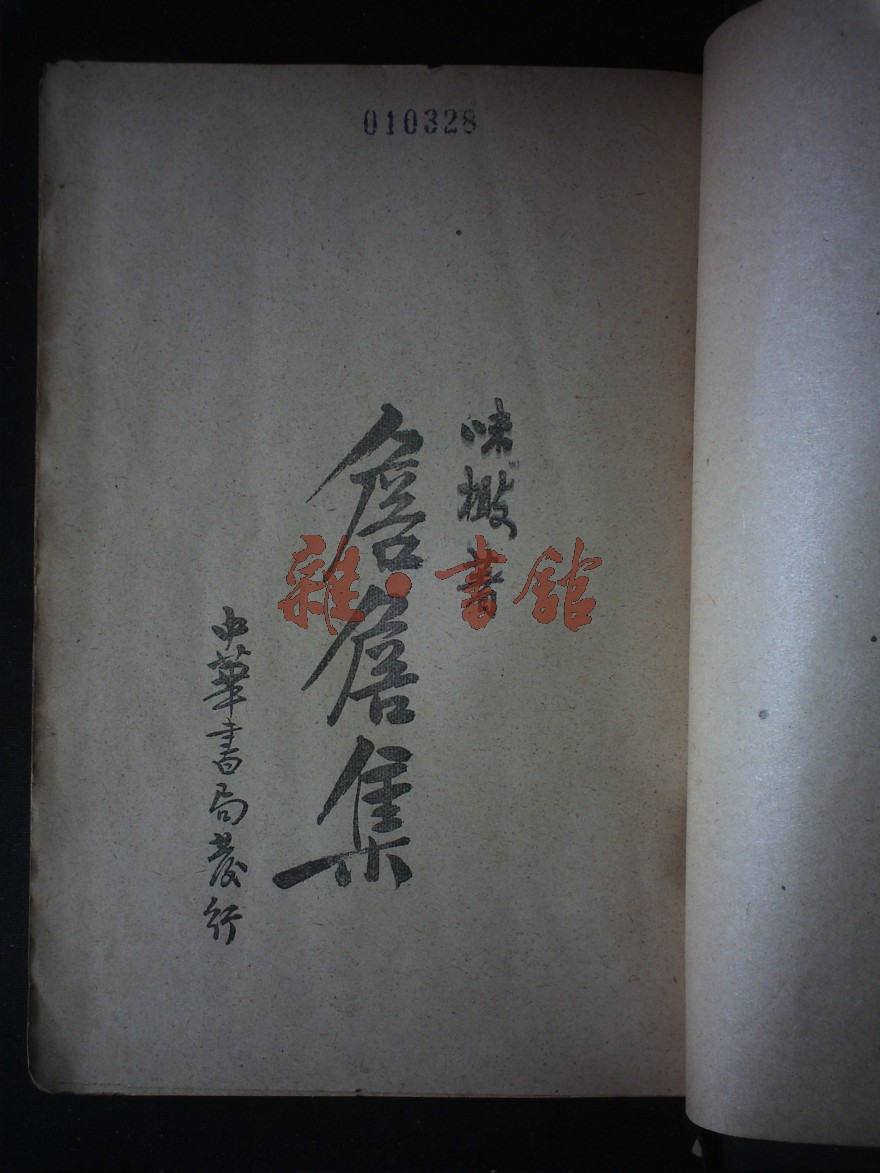 010328
味橄著
詹詹集
中華書局發行
雜·書館